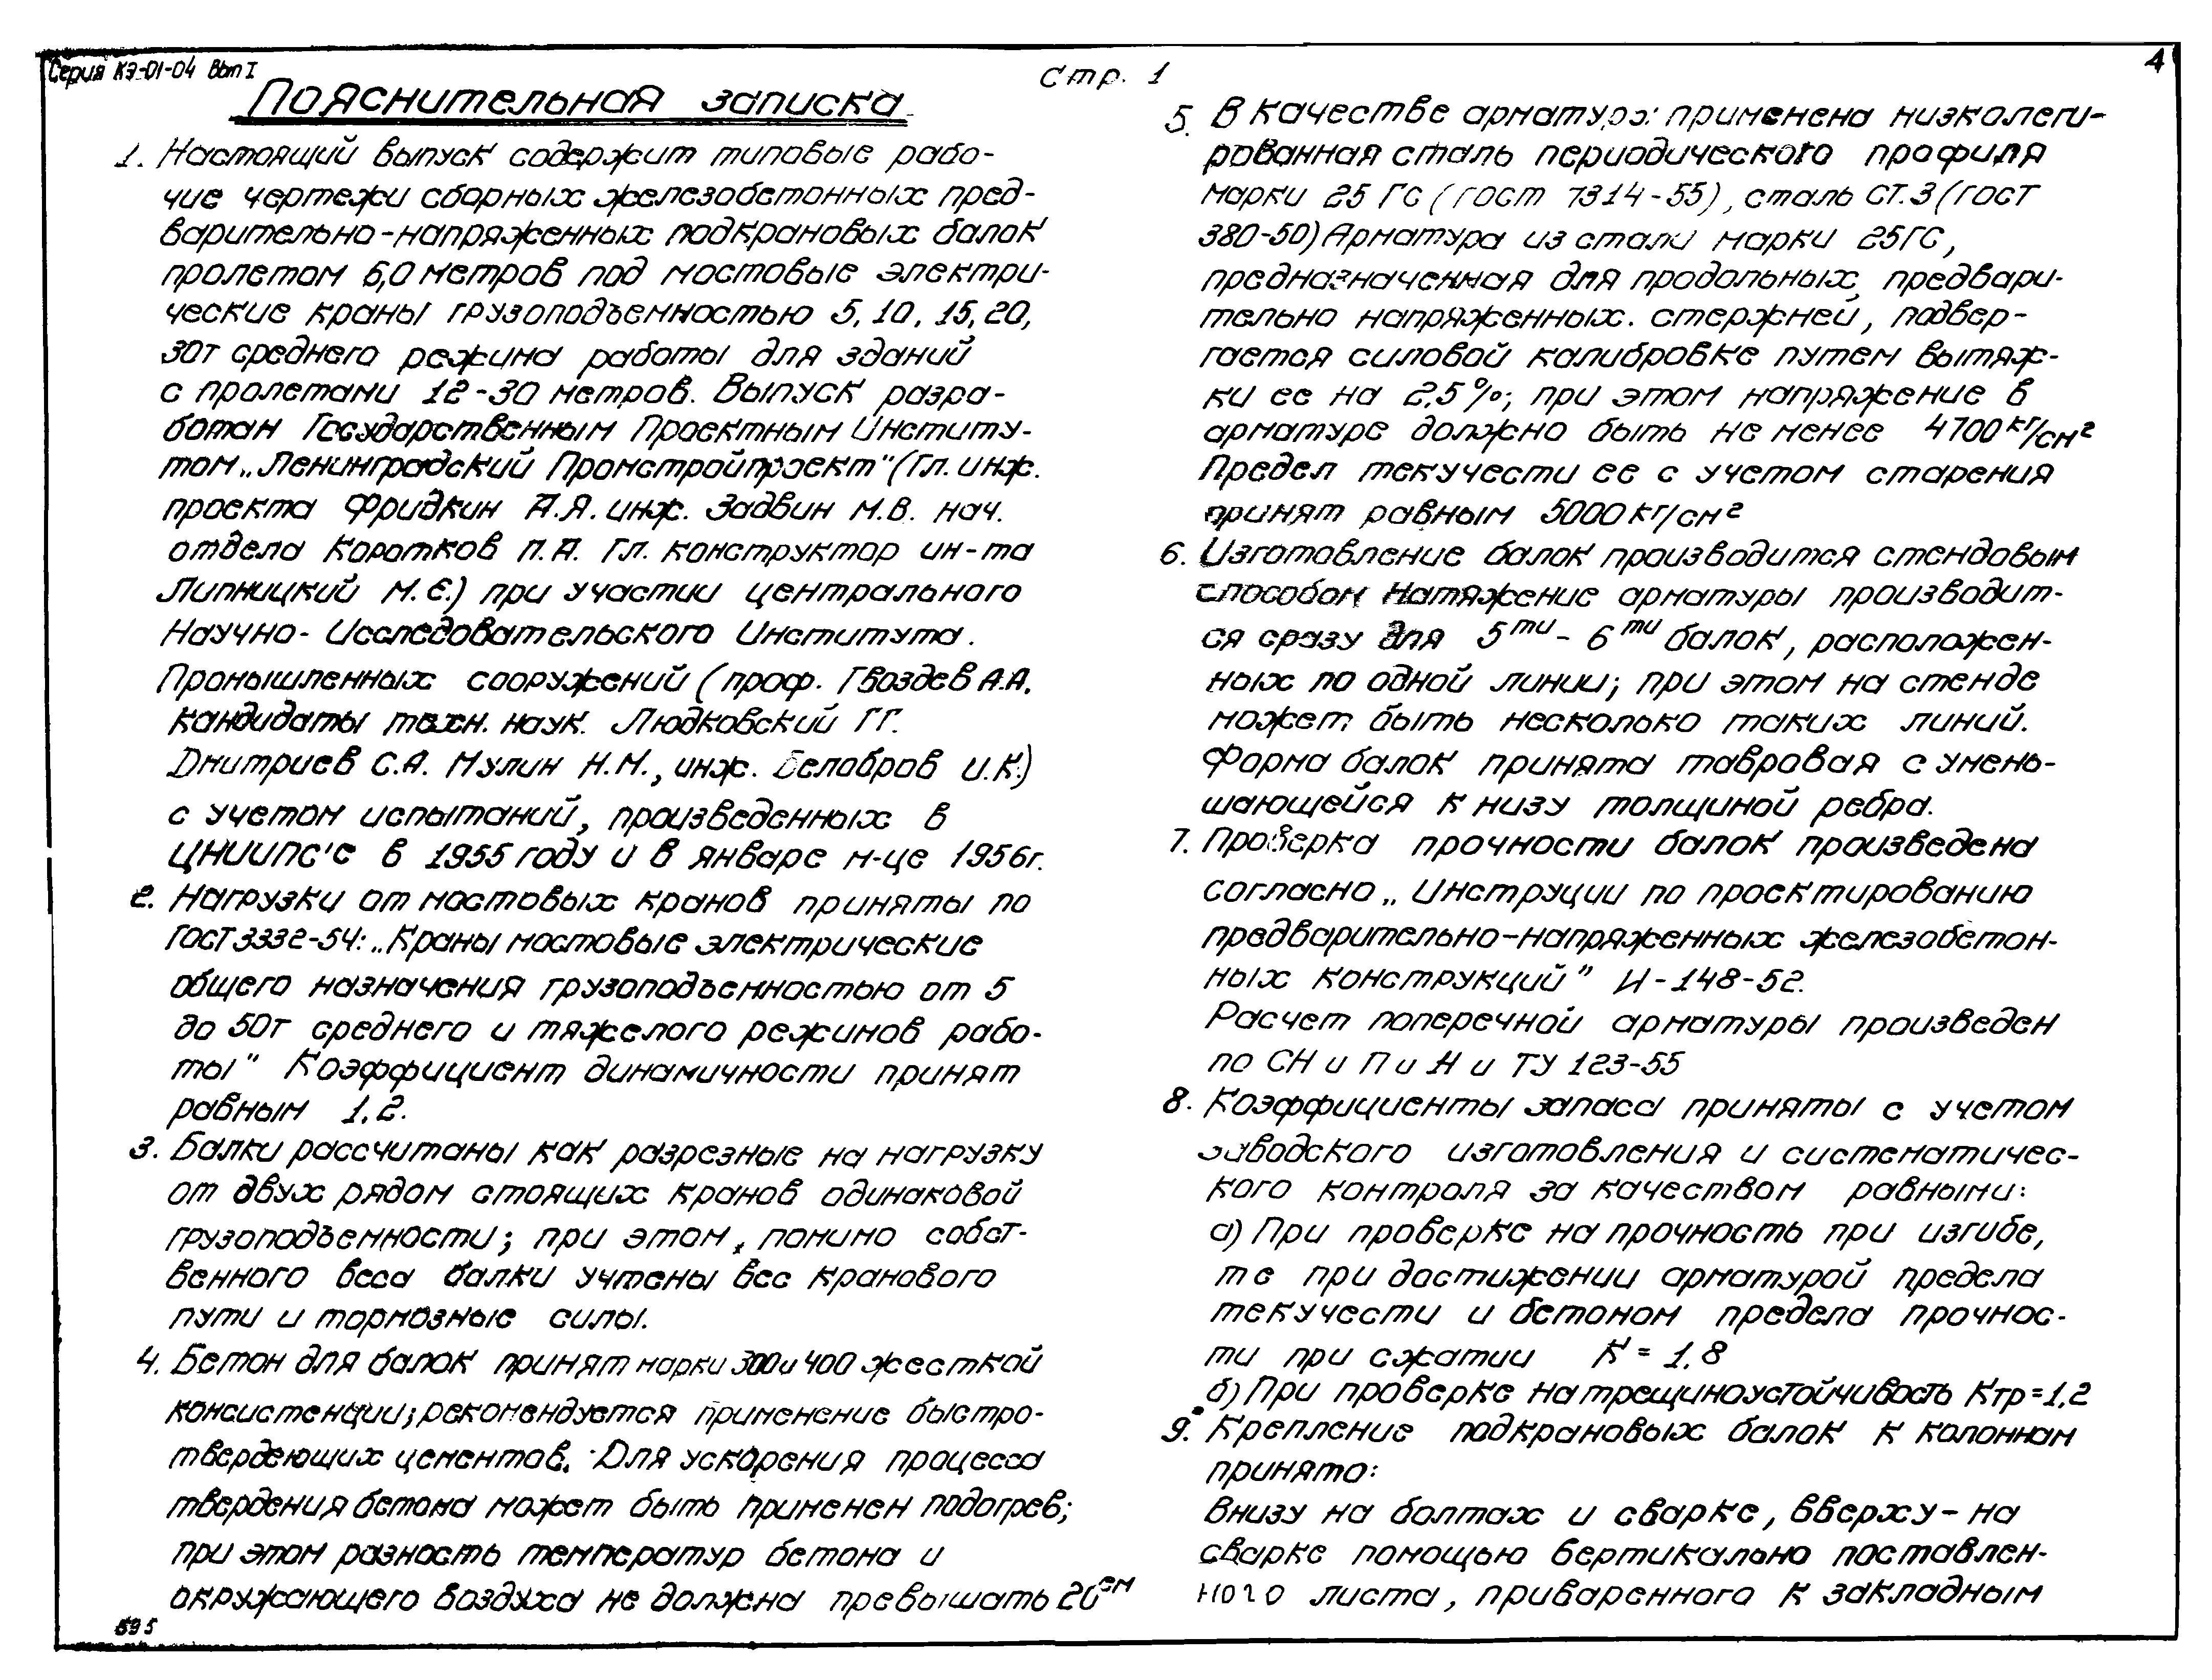 Серия КЭ-01-04 Вып I
Стр. 1
4
Пояснительная записка
1. Настоящий выпуск содержит типовые рабо-
чие чертежи сборных железобетонных пред-
варительно-напряженных подкрановых балок
пролетом 6,0 метров под мостовые электри-
ческие краны грузоподъемностью 5, 10, 15, 20,
30т среднего режима работы для зданий
с пролетами 12-30 метров. Выпуск разра-
ботан Государственным Проектным Институ-
том „Ленинградский Промстройпроект" (Гл. инж.
проекта Фридкин А.Я. инж. Задвин М.В. нач.
отдела Коротков П.А. Гл. конструктор ин-та
Липницкий М.Е.) при участии центрального
Научно-Исследовательского Института.
Промышленных сооружений (проф. Гвоздев А.А.
кандидаты техн. наук. Людковский Г.Г.
Дмитриев С.А. Мулин Н.М., инж. Белобров И.К.)
с учетом испытаний, произведенных в
ЦНИИПС'е в 1955 году и в январе м-це 1956г.
2. Нагрузки от мостовых кранов приняты по
ГОСТ 3332-54: „Краны мостовые электрические
общего назначения грузоподъемностью от 5
до 50т среднего и тяжелого режимов рабо-
ты" Коэффициент динамичности принят
равным 1,2.
3. Балки рассчитаны как разрезные на нагрузку
от двух рядом стоящих кранов одинаковой
грузоподъемности; при этом, помимо собст-
венного веса балки учтены вес кранового
пути и тормозные силы.
4. Бетон для балок принят марки 300 и 400 жесткой
консистенции; рекомендуется применение быстро-
твердеющих цементов. Для ускорения процесса
твердения бетона может быть применен подогрев;
при этом разность температур бетона и
окружающего воздуха не должна превышать 20ем
595
5. В качестве арматуры применена низколеги-
рованная сталь периодического профиля
марки 25 ГС (ГОСТ 7314-55), сталь СТ.3 (ГОСТ
380-50) Арматура из стали марки 25ГС,
предназначенная для продольных, предвари-
тельно напряженных. стержней, подвер-
гается силовой калибровке путем вытяж-
ки ее на 2,5%; при этом напряжение в
арматуре должно быть не менее 4700 кг/см²
Предел текучести ее с учетом старения
принят равным 5000 кг/см²
6. Изготовление балок производится стендовым
способом Натяжение арматуры производит-
ся сразу для 5ти - 6ти балок, расположен-
ных по одной линии; при этом на стенде
может быть несколько таких линий.
Форма балок принята тавровая с умень-
шающейся к низу толщиной ребра.
7. Проверка прочности балок произведена
согласно „Инструции по проектированию
предварительно-напряженных железобетон-
ных конструкций" И-148-52.
Расчет поперечной арматуры произведен
по СН и П и Н и ТУ 123-55
8. Коэффициенты запаса приняты с учетом
заводского изготовления и систематичес-
кого контроля за качеством равными:
а) При проверке на прочность при изгибе,
т е при достижении арматурой предела
текучести и бетоном предела прочнос-
ти при сжатии К = 1,8
б) При проверке на трещиноустойчивость Ктр=1,2
9. Крепление подкрановых балок к колоннам
принято:
внизу на болтах и сварке, вверху - на
сварке помощью вертикально поставлен-
ного листа, приваренного к закладным